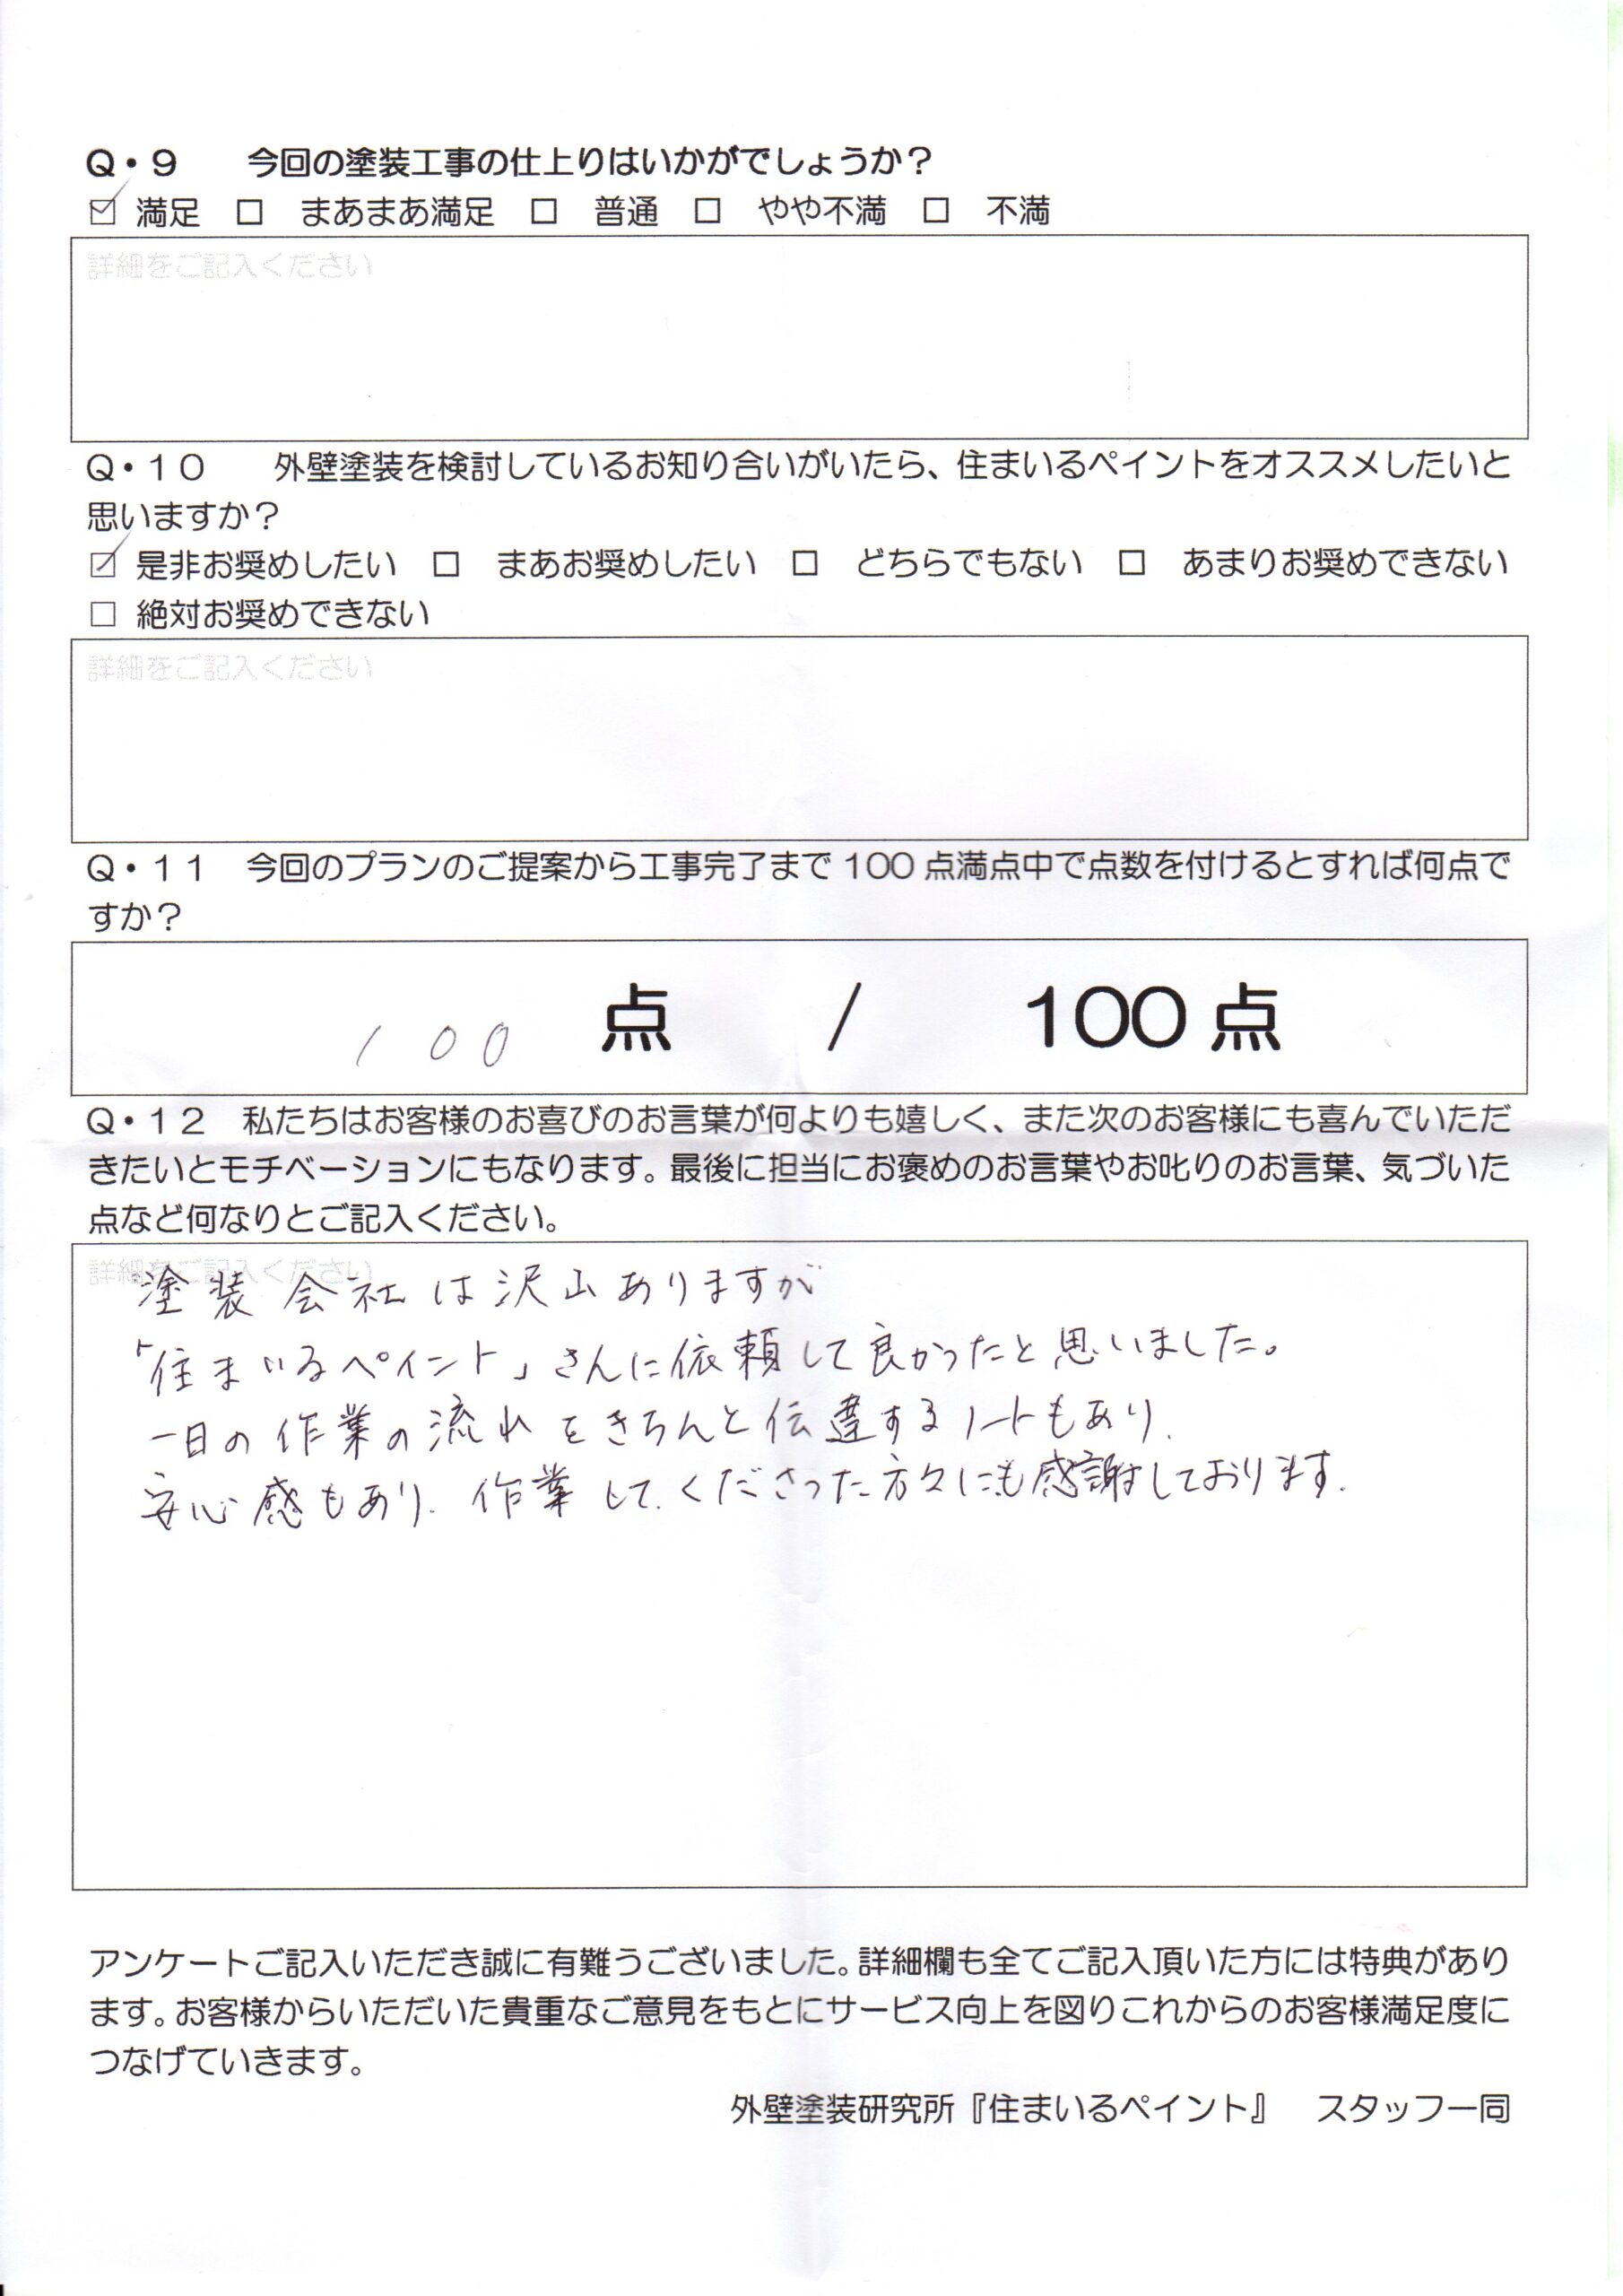 Q・9　今回の塗装工事の仕上りはいかがでしょうか？
☑ 満足 □ まあまあ満足 □ 普通 □ やや不満 □ 不満
詳細をご記入ください
Q・10　外壁塗装を検討しているお知り合いがいたら、住まいるペイントをオススメしたいと
思いますか？
☑ 是非お奨めしたい □ まあお奨めしたい □ どちらでもない □ あまりお奨めできない
□ 絶対お奨めできない
詳細をご記入ください
Q・11　今回のプランのご提案から工事完了まで100点満点中で点数を付けるとすれば何点で
すか？
100 点 / 100点
Q・12　私たちはお客様のお喜びのお言葉が何よりも嬉しく、また次のお客様にも喜んでいただ
きたいとモチベーションにもなります。最後に担当にお褒めのお言葉やお叱りのお言葉、気づいた
点など何なりとご記入ください。
詳細をご記入ください
塗装会社は沢山ありますが
「住まいるペイント」さんに依頼して良かったと思いました。
一日の作業の流れをきちんと伝達するノートもあり、
安心感もあり、作業してくださった方々にも感謝しております。
アンケートご記入いただき誠に有難うございました。詳細欄も全てご記入頂いた方には特典があり
ます。お客様からいただいた貴重なご意見をもとにサービス向上を図りこれからのお客様満足度に
つなげていきます。
外壁塗装研究所『住まいるペイント』　スタッフ一同